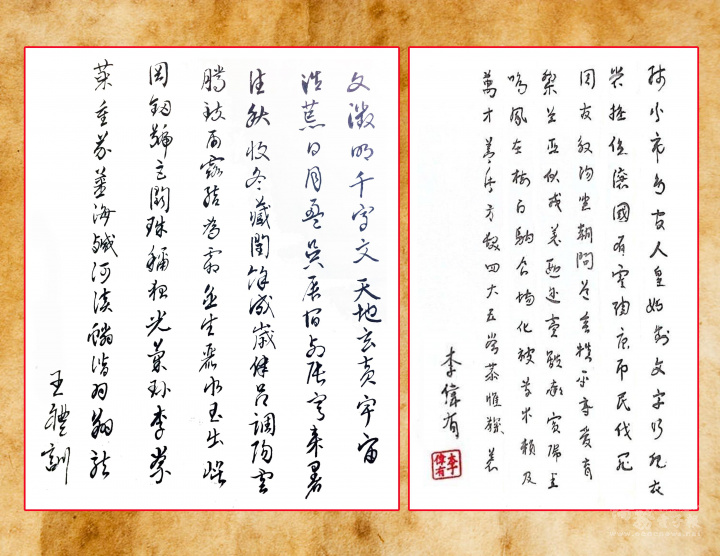 文徵明千字文 天地玄黃宇宙
洪荒日月盈昃辰宿列張寒來暑
往秋收冬藏閏餘成歲律呂調陽雲
騰致雨露結為霜金生麗水玉出崑
岡劍號巨闕珠稱夜光菓珍李柰
菜重芥薑海鹹河淡鱗潛羽翔龍
王禮訓
師火帝鳥官人皇始制文字乃服衣
裳推位讓國有虞陶唐弔民伐罪
周發殷湯坐朝問道垂拱平章愛育
黎首臣伏戎羌遐邇壹體率賓歸王
鳴鳳在樹白駒食場化被草木賴及
萬方蓋此身髮四大五常恭惟鞠養
李偉有
李偉有